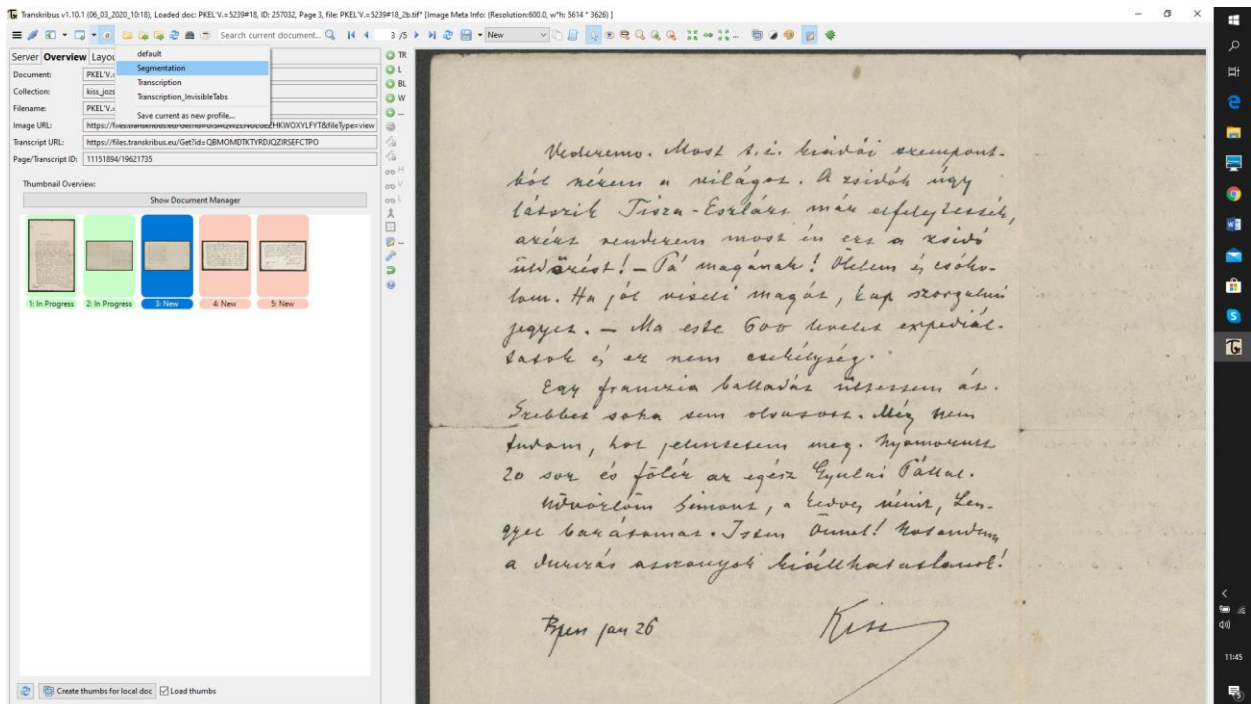 Transkribus v1.10.1 (06_03_2020_10:18), Loaded doc: PKEL'V.=5239#18, ID: 257032, Page 3, file: PKEL'V.=5239#18_2b.tif* [Image Meta Info: (Resolution:600.0, w*h: 5614 * 3626) ]
Search current document... 3 /5 New
Server Overview Layou
default
Segmentation
Transcription
Transcription_InvisibleTabs
Save current as new profile...
Document: PKEL'V.
Collection: kiss_jozs
Filename: PKEL'V.=
Image URL:
Transcript URL: https://files.transkribus.eu/Get?id=QBMOMDTKTYRDJQZIRSEFCTPO
Page/Transcript ID: 11151894/19621735
Thumbnail Overview:
Show Document Manager
1: In Progress 2: In Progress 3: New 4: New 5: New
Create thumbs for local doc Load thumbs
TR
L
BL
W
...
H
V
L
Vederemo. Most t.i. kiadói szempont-
ból nézem a világot. A zsidók úgy
látszik Tisza-Eszlárt már elfelejtették,
azért rendezem most én ezt a zsidó
üldözést! – Pá magának! Ölelem és csóko-
lom. Ha jól viseli magát, kap szorgalmi
jegyet. – Ma este 600 levelet expediál-
tatok és ez nem csekélység.
Egy franczia balladát ültettem át.
Szebbet soha sem olvasott. Még nem
tudom, hol jelentetem meg. Nyomorult
20 sor és fölér az egész Gyulai Pállal.
Üdvözlöm Simont, a kedves nénit, Len-
gyel barátomat. Isten Önnel!
a durczás asszonyok kiállhatatlanok!
Bpest jan 26 Kiss
11:45